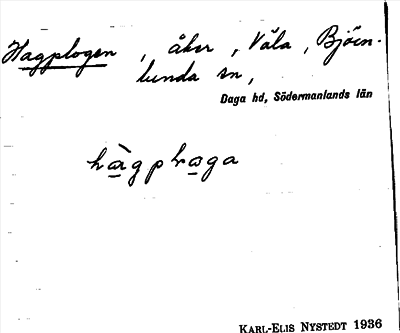 Hagplogen, åker, Våla, Björn-
lunda sn,
Daga hd, Södermanlands län
hàgplωga
KARL-ELIS NYSTEDT 1936